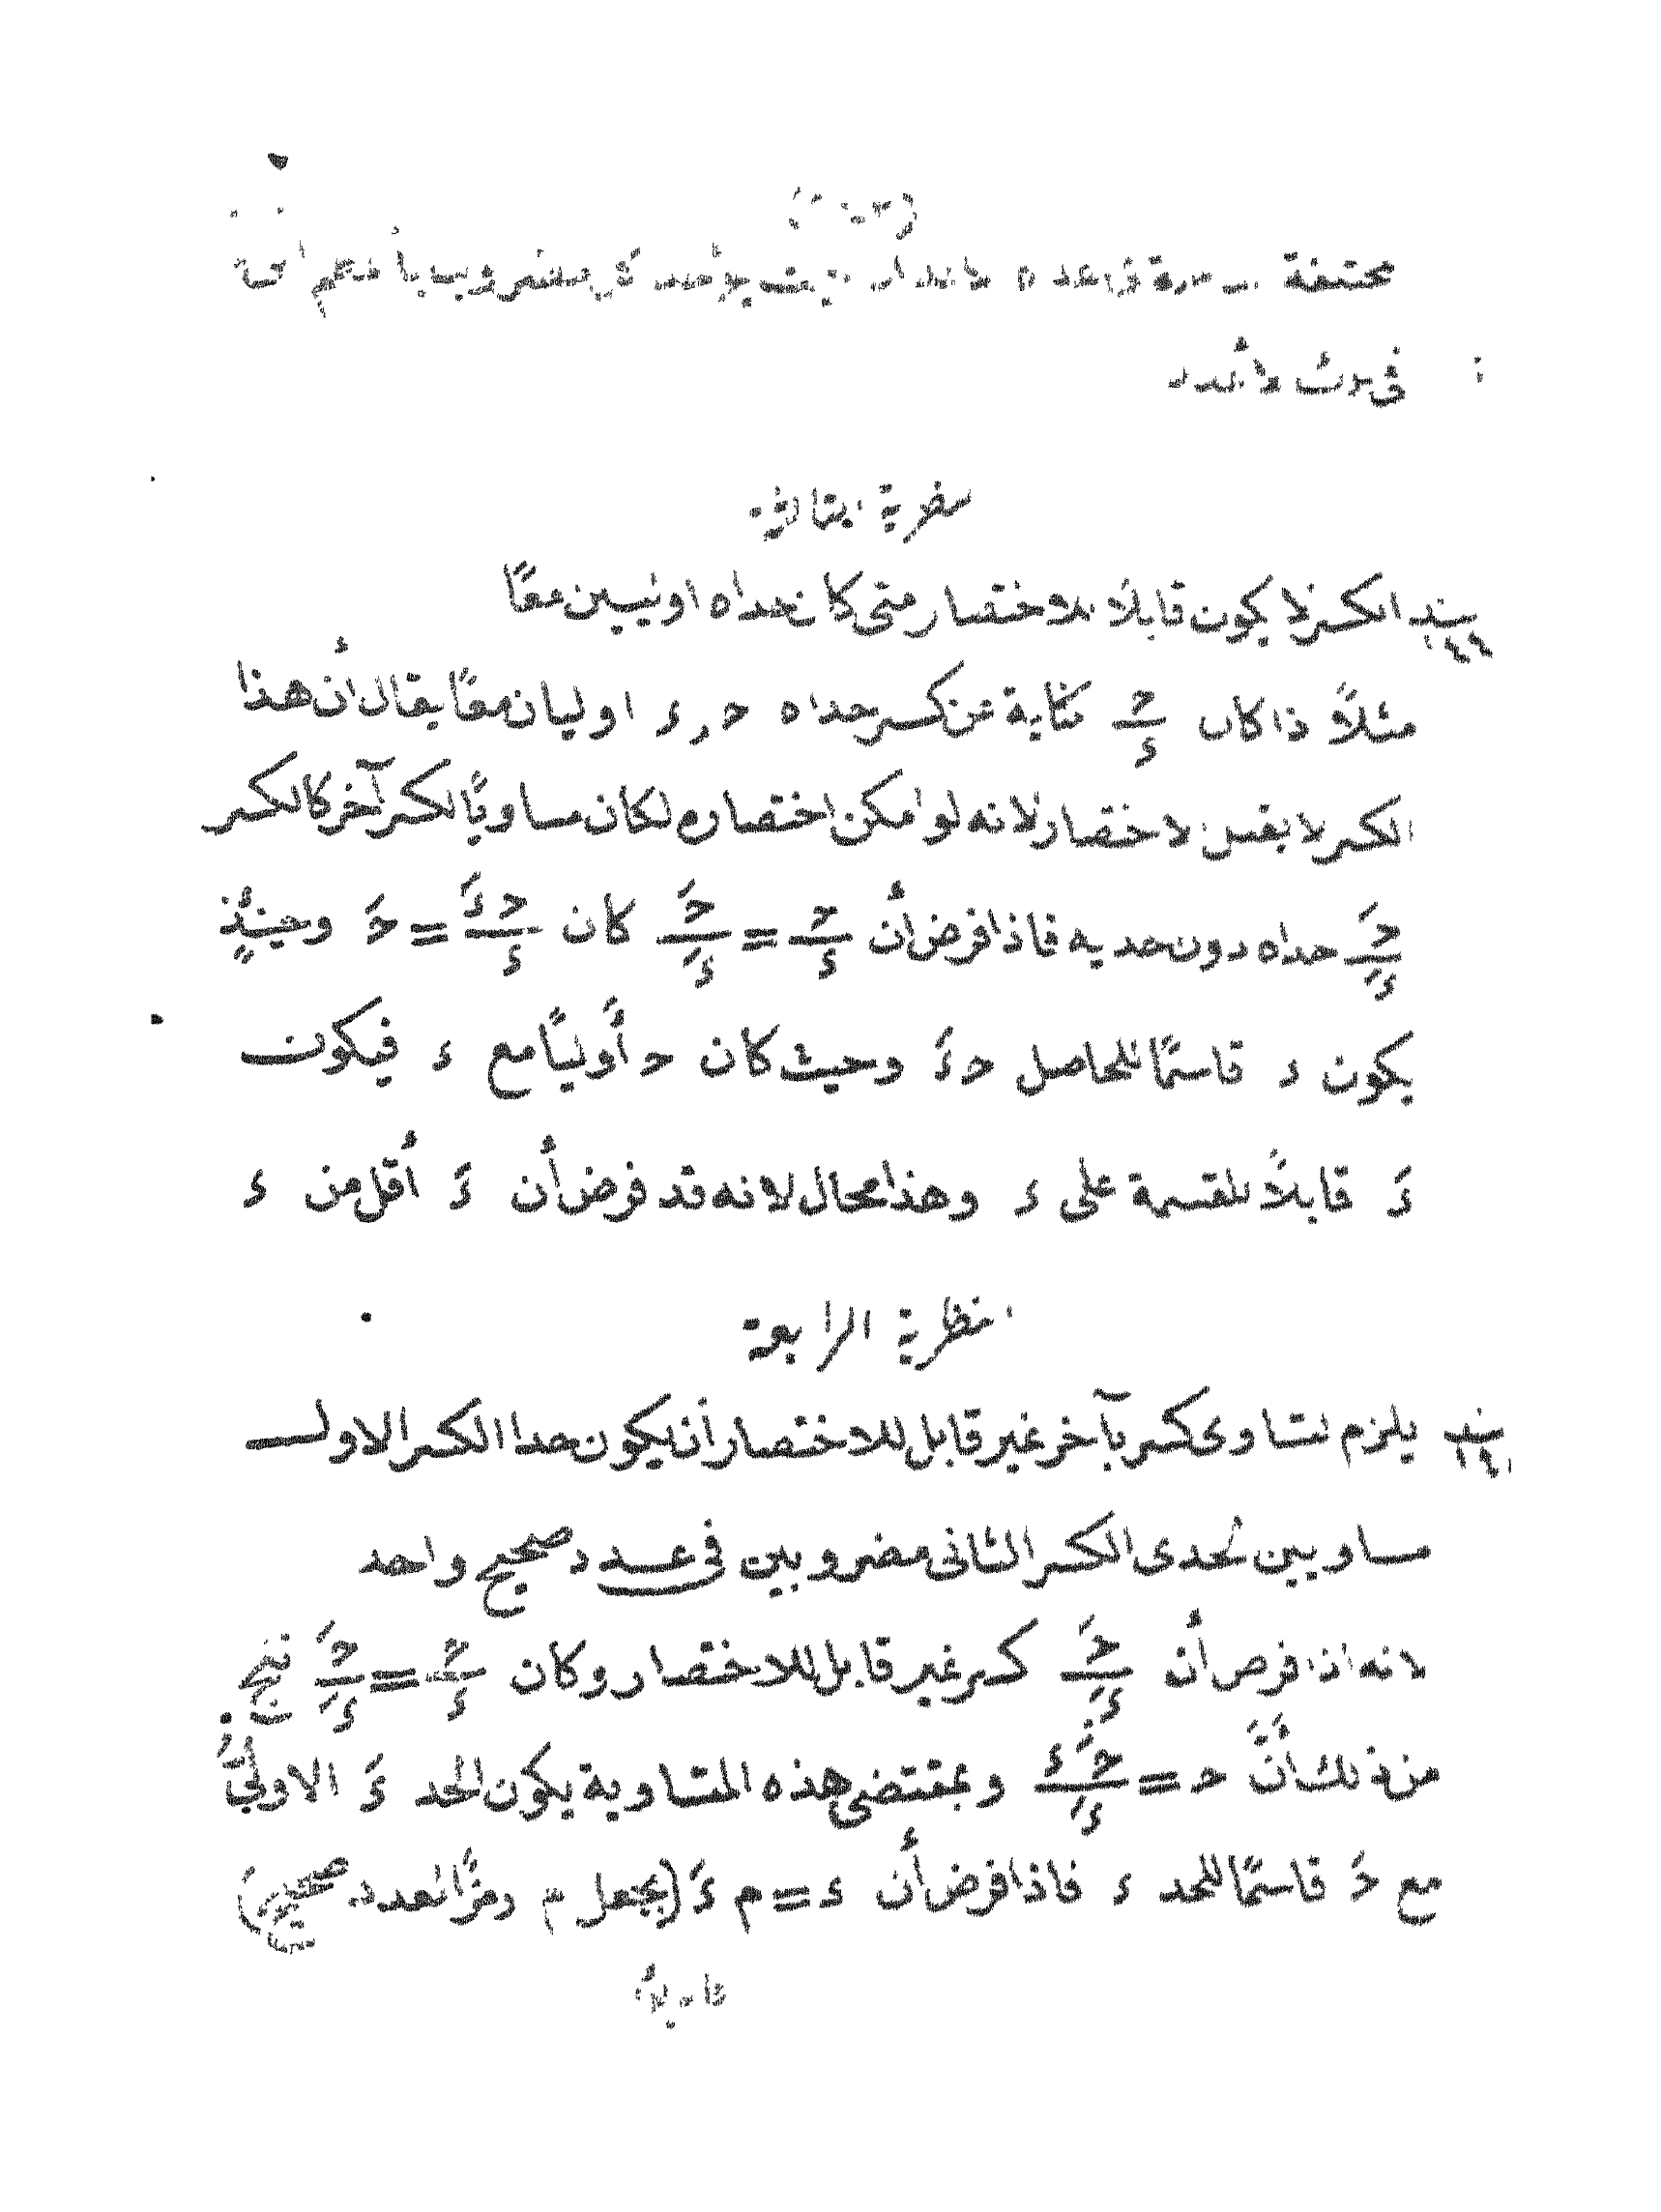 مختلفة
فى
النظرية الثالثة
بند ١٤٦ الكسر لا يكون قابلاً للاختصار متى كان حداه اوليين معًا
مثلاً اذا كان حـ/ء كناية عن كسر حداه حـ , ء اوليان معًا يقال أن هذا
الكسر لا يقبل الاختصار لانه لو امكن اختصاره لكان مساويًا لكسر آخر كالكسر
حـَ/ءَ حداه دون حديه فاذا فرض أن حـ/ء = حـَ/ءَ كان حـ ءَ/ء = حـَ وحينئذٍ
يكون ء قاسمًا للحاصل حـ ءَ وحيث كان حـ أوليًا مع ء فيكون
ءَ قابلاً للقسمة على ء وهذا محال لانه قد فرض أن ءَ أقل من ء
النظرية الرابعة
بند يلزم لتساوى كسر بآخر غير قابل للاختصار أن يكون حدا الكسر الاول
مساويين لحدى الكسر الثانى مضروبين فى عدد صحيح واحد
لانه اذا فرض أن حـَ/ءَ كسر غير قابل للاختصار وكان حـ/ء = حـَ/ءَ نتج
من ذلك أنَّ حـ = حـَ ء/ءَ وبمقتضى هذه المتساوية يكون الحد ءَ الاولىُّ
مع حـَ قاسمًا للحد ء فاذا فرض أن ء = م ءَ (بجعل م رمزًا لعدد صحيح)